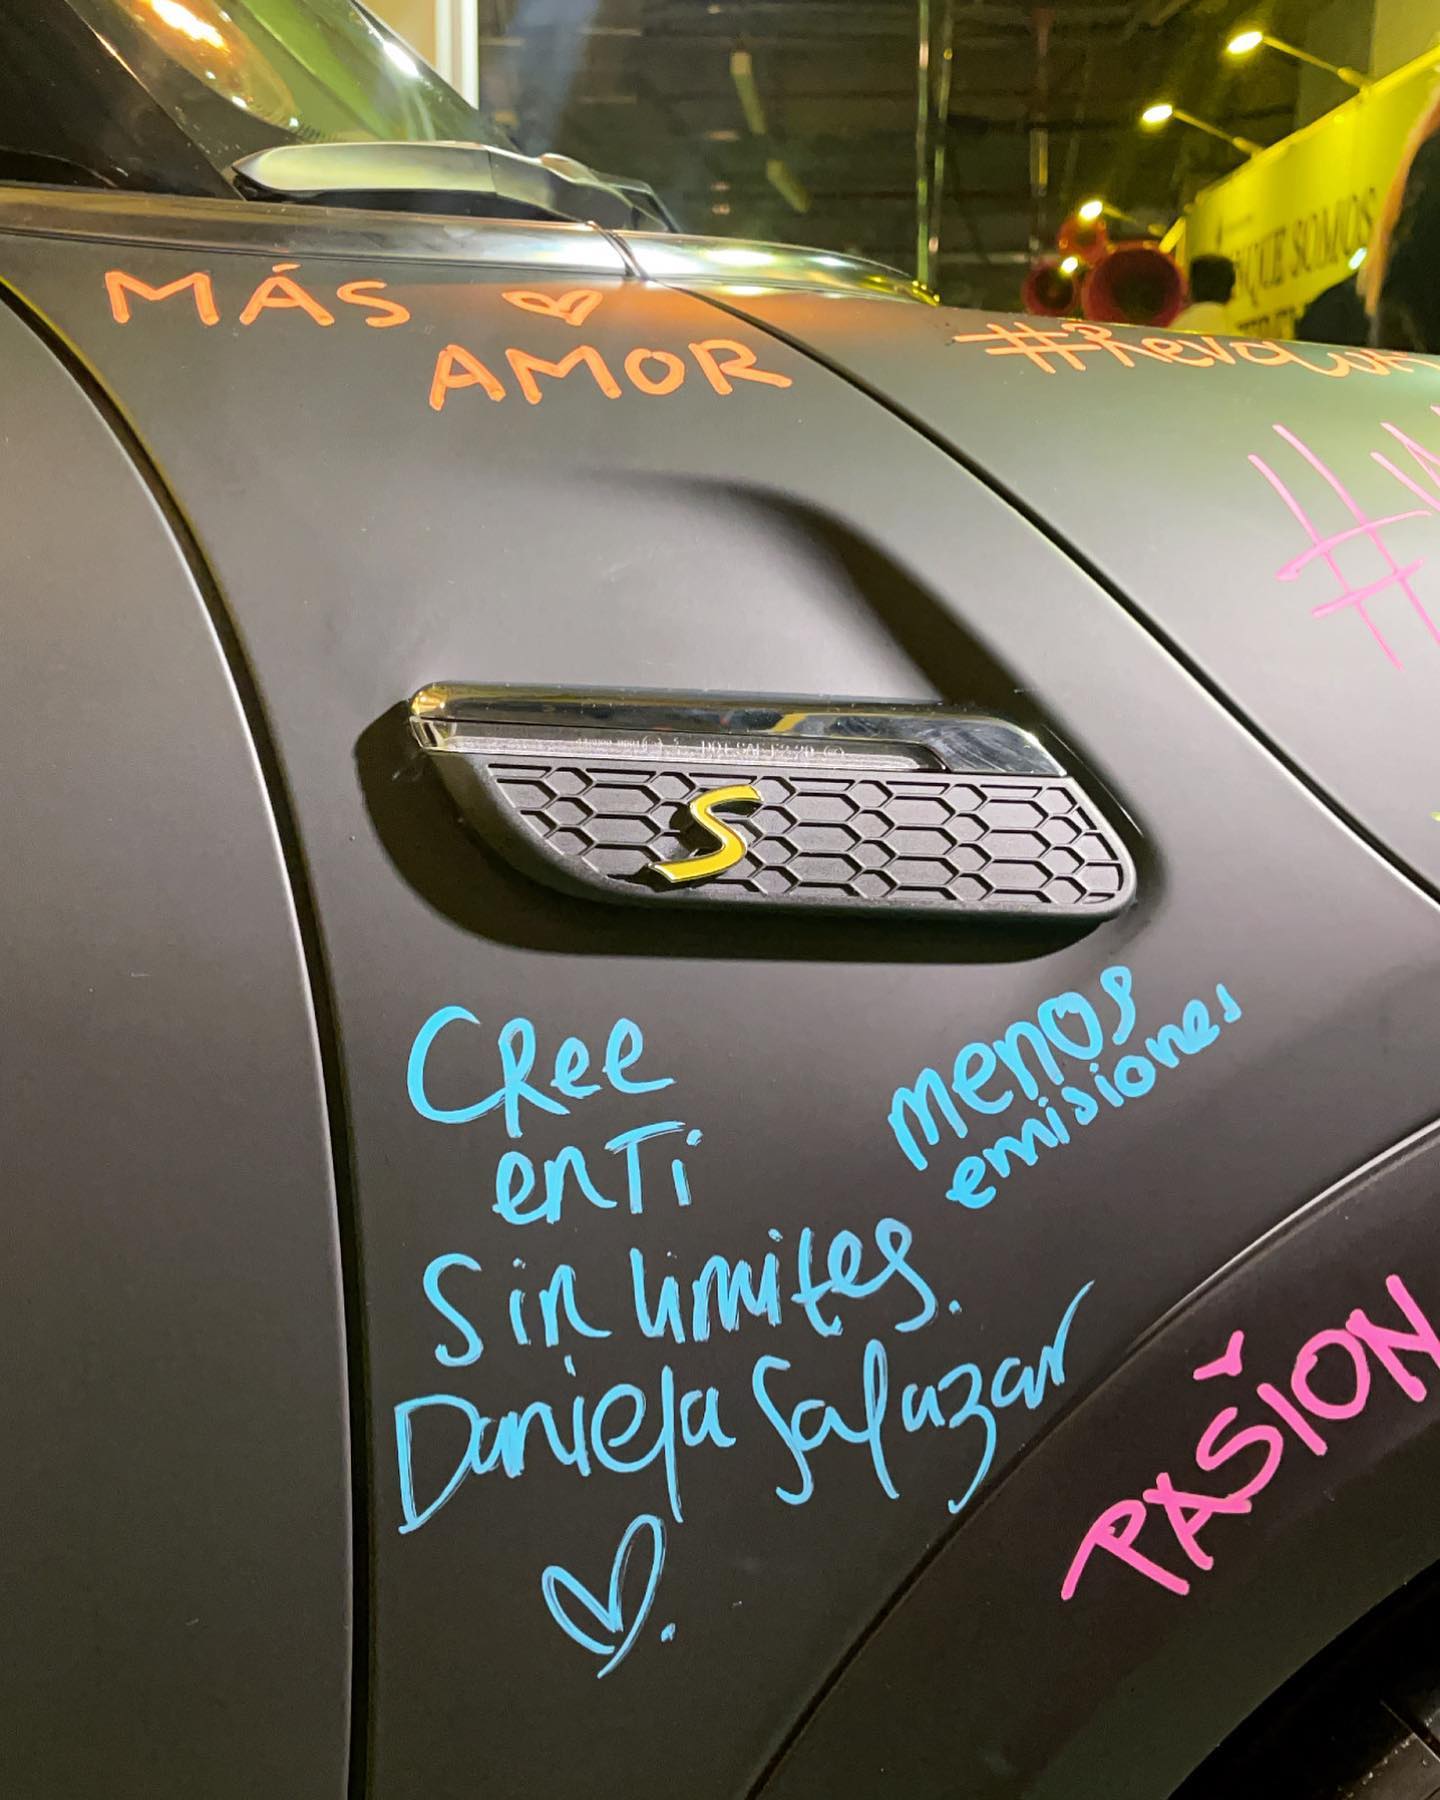 MÁS
AMOR
SOMOS
S
Cree
en Ti
Sin limites.
Daniela Salazar
menos
emisiones
PASION